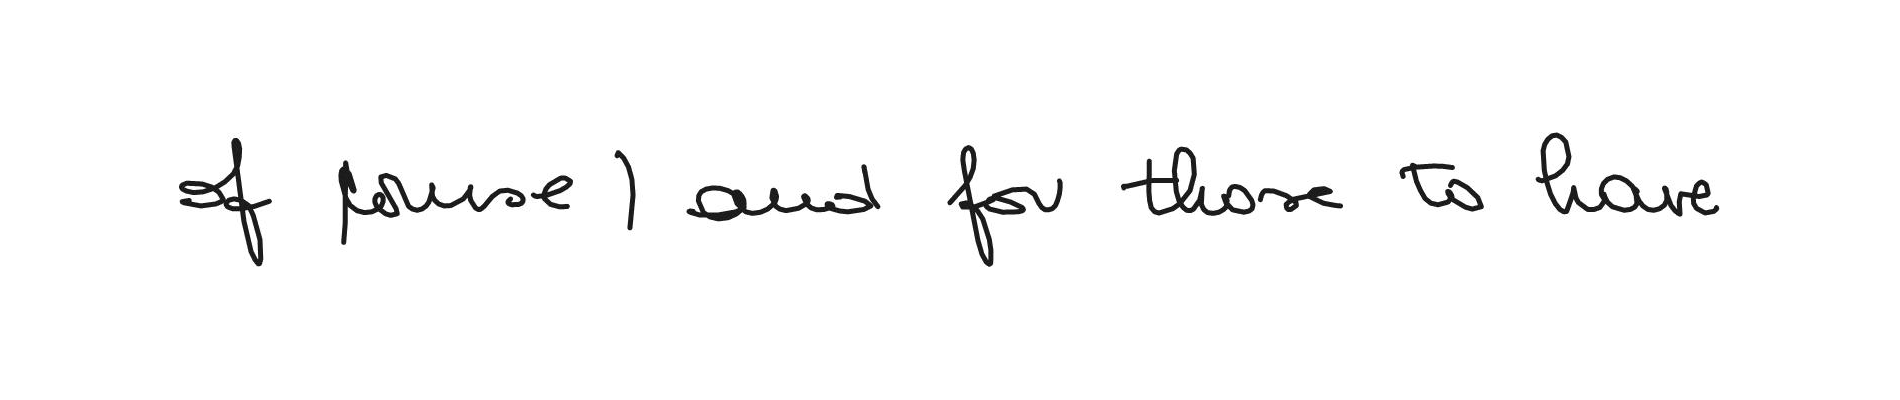 of course) and for those to have